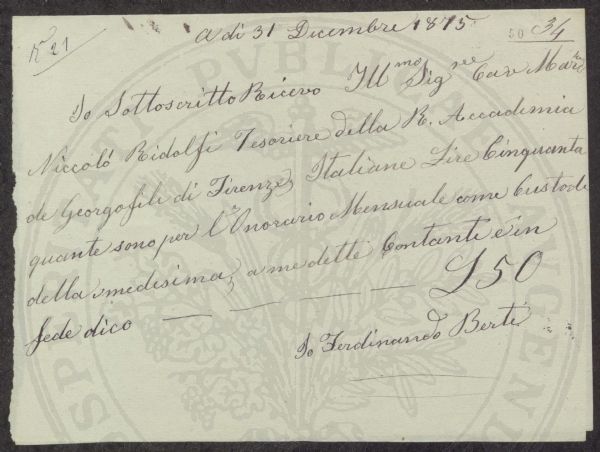 N° 21
A dì 31 Dicembre 1875
50 34
Io Sottoscritto Ricevo Ill.mo Sig.re Cav Mar.
Niccolò Ridolfi Tesoriere della R. Accademia
de Georgofili di Firenze, Italiane Lire Cinquanta
quante sono per l'Onorario Mensuale come Custode
della medesima, a me dette Contante é in
fede dico — — — — £50
Io Ferdinando Berti